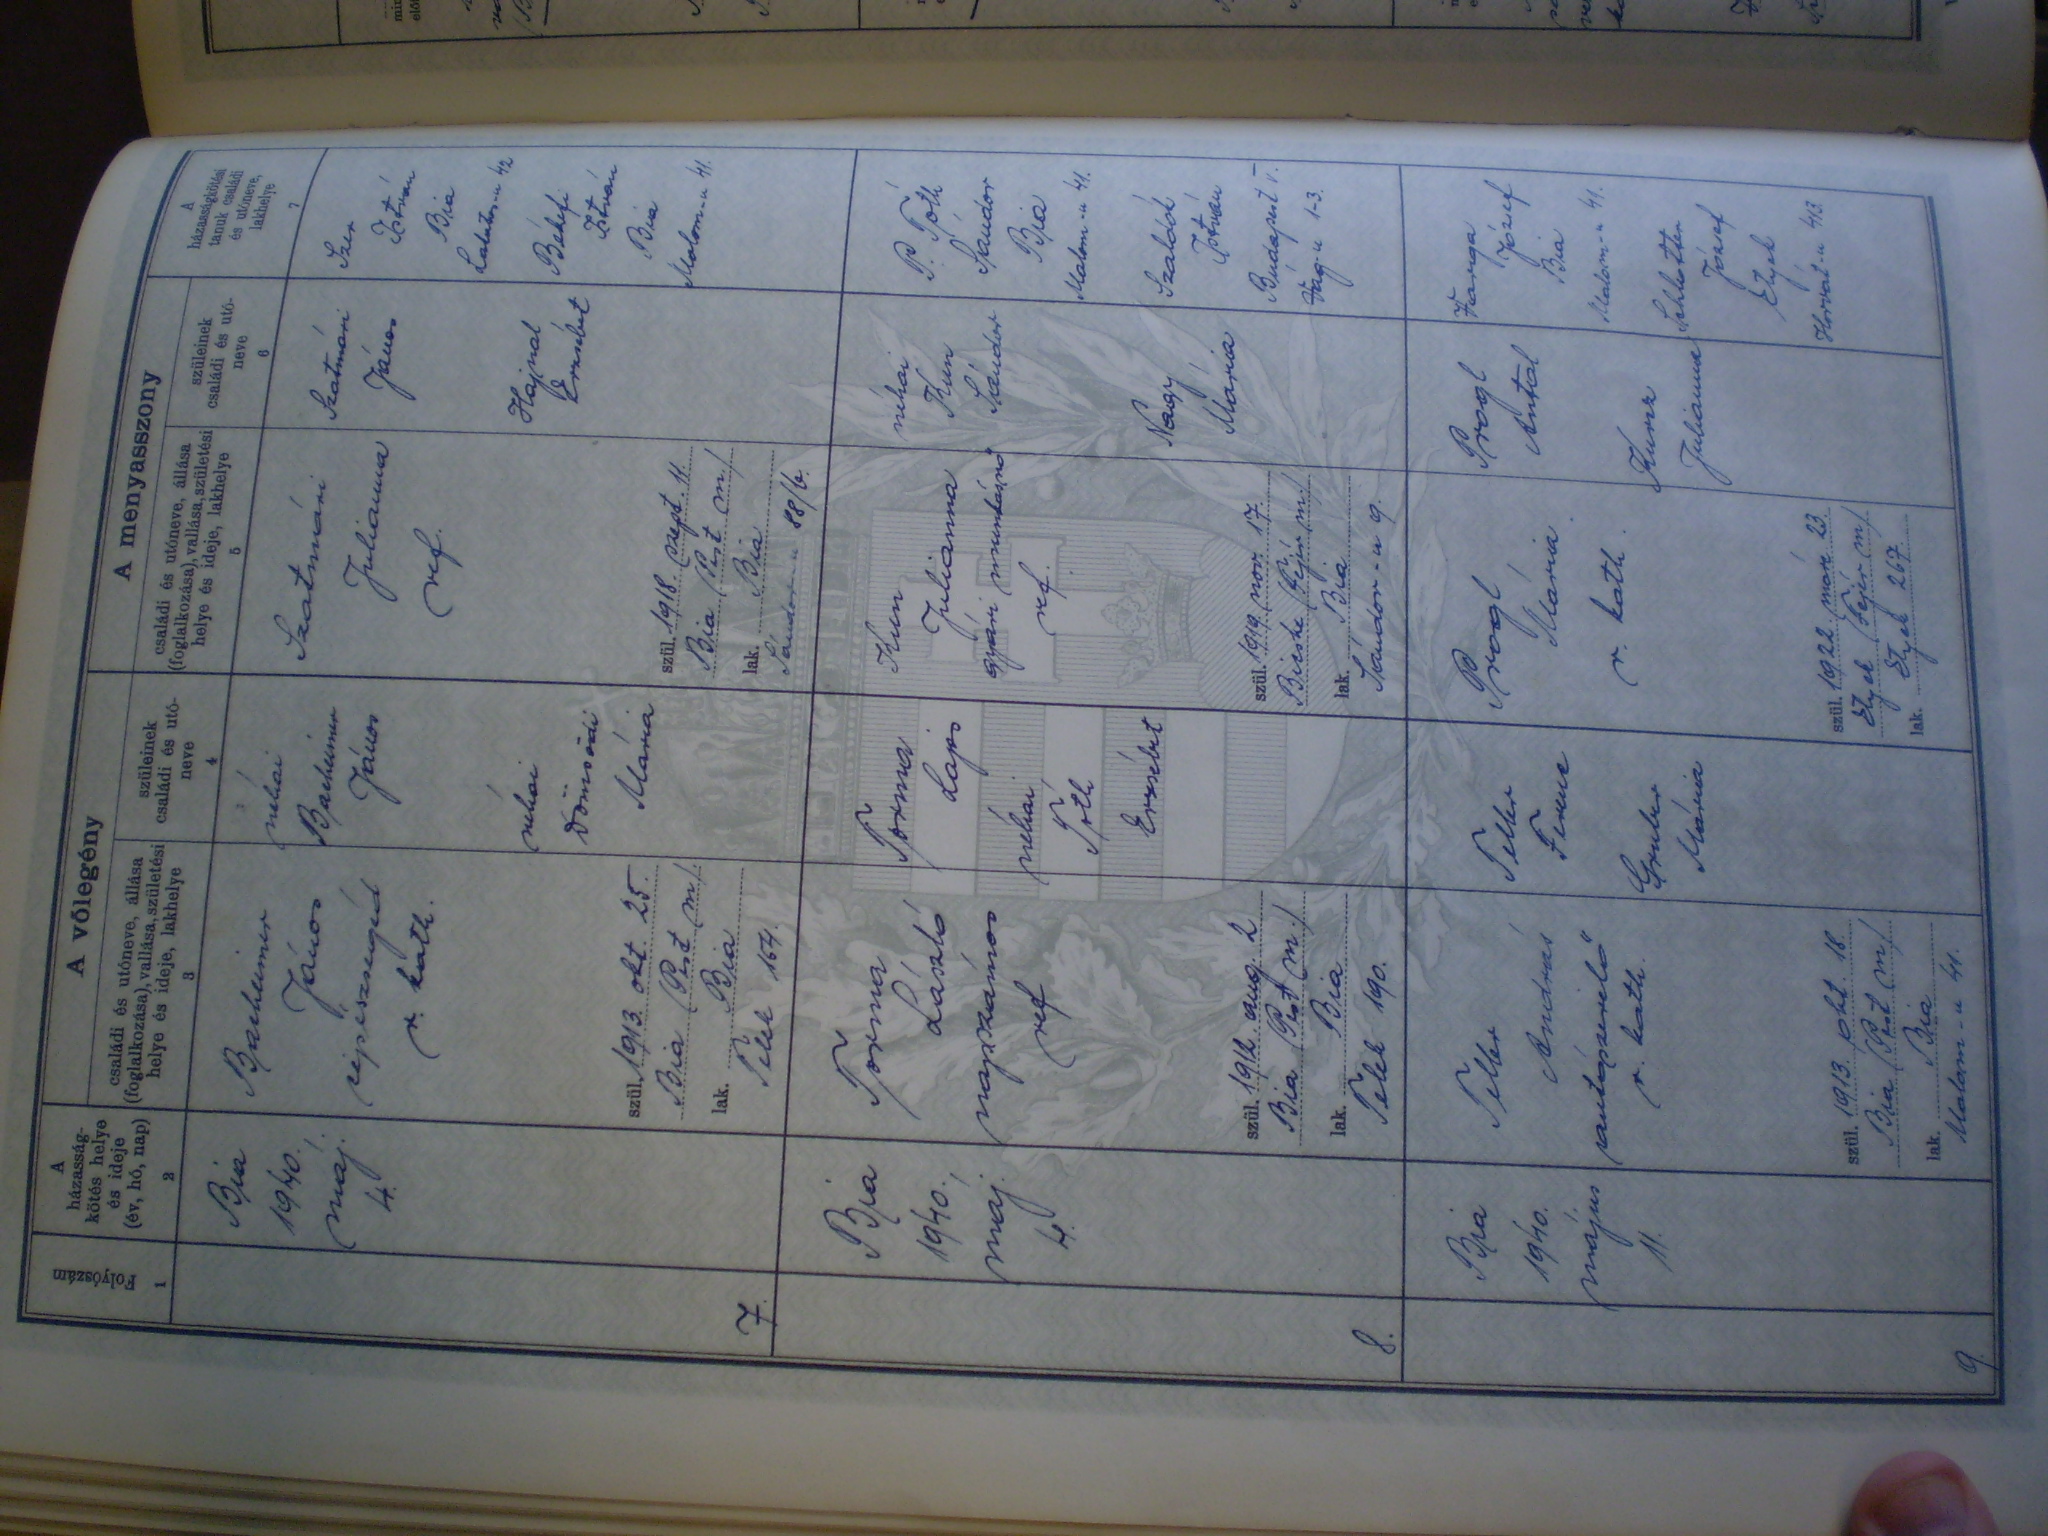 Folyószám
1
A
házasság-
kötés helye
és ideje
(év, hó, nap)
2
A vőlegény
családi és utóneve, állása
(foglalkozása), vallása, születési
helye és ideje, lakhelye
3
szüleinek
családi és utó-
neve
4
A menyasszony
családi és utóneve, állása
(foglalkozása), vallása, születési
helye és ideje, lakhelye
5
szüleinek
családi és utó-
neve
6
A
házasságkötési
tanuk családi
és utóneve,
lakhelye
7
7.
Bia
1940.
máj.
4.
Bacheimer
János
gépészsegéd
r. kath.
szül. 1913. okt. 25.
Bia (Pest m.)
lak. Bia
Telek 164.
néhai
Bacheimer
János
néhai
Dömsödi
Mária
Szatmári
Julianna
ref.
szül. 1918. szept. 11.
Bia (Pest m.)
lak. Bia
Sándor-u 88/b.
Szatmári
János
Hajnal
Erzsébet
István
Bia
Békefi
István
Bia
Malom-u 41.
8.
Bia
1940.
máj.
4.
Torma
László
napszámos
ref
szül. 1912. aug. 2
Bia (Pest m.)
lak. Bia
Telek 190.
Torma
Lajos
néhai
Tóth
Erzsébet
Kun
Julianna
gyári munkásnő
ref.
szül. 1919. nov. 17.
Bicske (Fejér m.)
lak. Bia
Sándor-u 9.
néhai
Kun
Sándor
Nagy
Mária
P. Tóth
Sándor
Bia
Malom-u 41.
Szaládi
István
Budapest V.
Vág-u 1-3.
9.
Bia
1940.
május
11.
Teller
András
r. kath.
szül. 1913. okt. 18.
Bia (Pest m.)
lak. Bia
Malom-u 41.
Teller
Ferenc
Gruber
Mária
Progl
Mária
r. kath.
szül. 1922. már. 23.
Etyek (Fejér m.)
lak. Etyek 267.
Progl
Antal
Kunz
Julianna
Varga
József
Bia
Malom-u 41.
József
Etyek
Horvát-u 413.